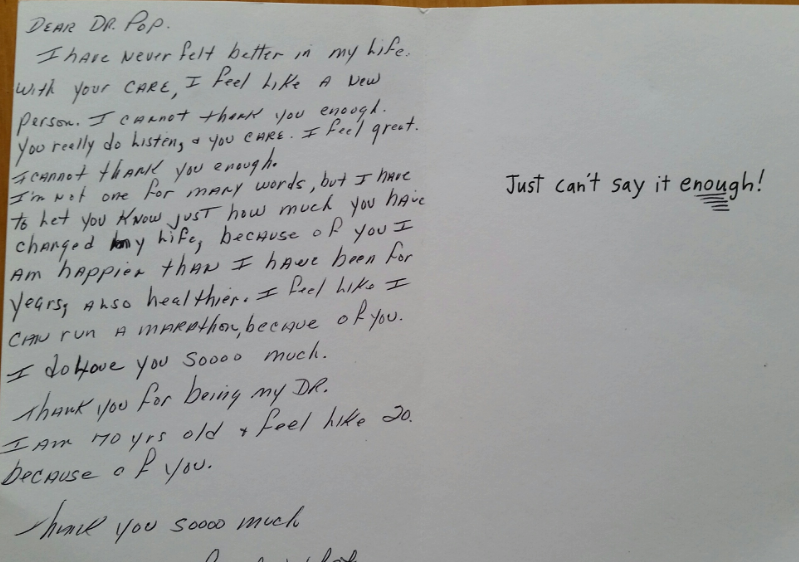 DEAR DR. POP.
I HAVE NEVER felt better in my Life.
With your CARE, I feel Like A NEW
person. I CANNOT thank you enough.
You really do Listen, & you CARE. I feel great.
I CANNOT THANK you enough.
I'm NOT one for MANY words, but I HAVE
to Let you KNOW JUST how much you HAVE
changed my Life, because of you I
AM HAPPIER THAN I HAVE been for
years, ALSO healthier. I feel Like I
CAN run A MARAthon, becaue of you.
I do Love you soooo much.
THANK you for being my DR.
I AM 70 yrs old & feel Like 20.
because of you.
Thank you soooo much
Just can't say it enough!